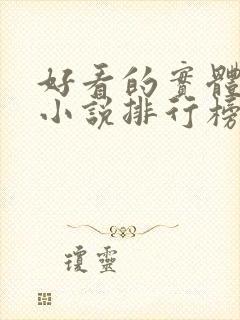 好看的實體
小說排行榜
瓊靈